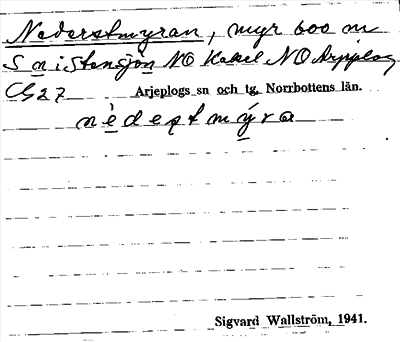 Nederstmyran, myr 600 m
S Mistensjön NO Kakel NO Arjeplog
Cg27 Arjeplogs sn och tg, Norrbottens län.
nèdeʂtmýra
Sigvard Wallström, 1941.